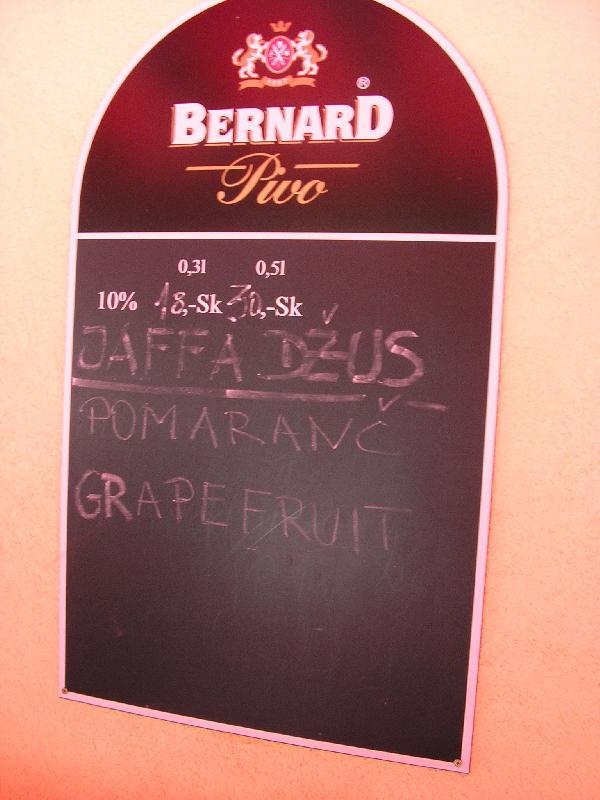 BERNARD ®
Pivo
0,3l 0,5l
10% 18,-Sk 30,-Sk
JAFFA DŽUS
POMARANČ
GRAPEFRUIT